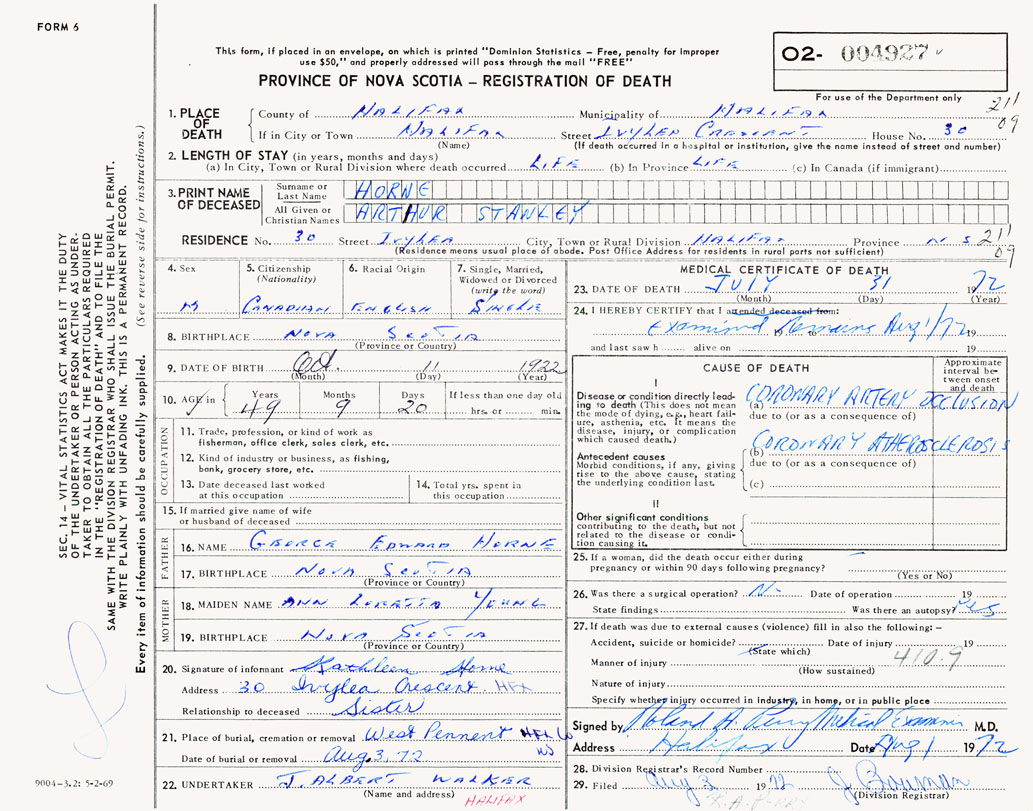 FORM 6
This form, if placed in an envelope, on which is printed "Dominion Statistics – Free, penalty for improper
use $50," and properly addressed will pass through the mail "FREE"
PROVINCE OF NOVA SCOTIA – REGISTRATION OF DEATH
02- 004927
For use of the Department only
211
09
SEC. 14 – VITAL STATISTICS ACT MAKES IT THE DUTY
OF THE UNDERTAKER OR PERSON ACTING AS UNDER-
TAKER TO OBTAIN ALL THE PARTICULARS REQUIRED
IN THE "REGISTRATION OF DEATH" AND TO FILE THE
SAME WITH THE DIVISION REGISTRAR WHO SHALL ISSUE THE BURIAL PERMIT.
WRITE PLAINLY WITH UNFADING INK. THIS IS A PERMANENT RECORD.
Every item of information should be carefully supplied. (See reverse side for instructions.)
1. PLACE OF DEATH
County of HALIFAX Municipality of HALIFAX
If in City or Town HALIFAX Street IVYLEA CRESCENT House No. 30
(Name) (If death occurred in a hospital or institution, give the name instead of street and number)
2. LENGTH OF STAY (in years, months and days)
(a) In City, Town or Rural Division where death occurred LIFE (b) In Province LIFE (c) In Canada (if immigrant)
3. PRINT NAME OF DECEASED
Surname or Last Name HORNE
All Given or Christian Names ARTHUR STANLEY
RESIDENCE No. 30 Street IVYLEA City, Town or Rural Division HALIFAX Province N S 211
09
(Residence means usual place of abode. Post Office Address for residents in rural parts not sufficient)
4. Sex 5. Citizenship (Nationality) 6. Racial Origin 7. Single, Married, Widowed or Divorced (write the word)
M CANADIAN ENGLISH SINGLE
8. BIRTHPLACE NOVA SCOTIA
(Province or Country)
9. DATE OF BIRTH Oct. 11 1922
(Month) (Day) (Year)
10. AGE in Years Months Days If less than one day old
49 9 20 hrs. or min.
OCCUPATION
11. Trade, profession, or kind of work as
fisherman, office clerk, sales clerk, etc.
12. Kind of industry or business, as fishing,
bank, grocery store, etc.
13. Date deceased last worked
at this occupation
14. Total yrs. spent in
this occupation
15. If married give name of wife
or husband of deceased
FATHER
16. NAME GEORGE EDWARD HORNE
17. BIRTHPLACE NOVA SCOTIA
(Province or Country)
MOTHER
18. MAIDEN NAME ANN LORETTA YOUNG
19. BIRTHPLACE NOVA SCOTIA
(Province or Country)
20. Signature of informant Kathleen Horne
Address 30 Ivylea Crescent. HFX
Relationship to deceased Sister
21. Place of burial, cremation or removal West Pennent HFX Co
NS
Date of burial or removal Aug. 3, 72
22. UNDERTAKER J. ALBERT WALKER
(Name and address)
HALIFAX
9004-3.2: 5-2-69
MEDICAL CERTIFICATE OF DEATH
23. DATE OF DEATH JULY 31 1972
(Month) (Day) (Year)
24. I HEREBY CERTIFY that I attended deceased from:
Examined Remains Aug 1/72 19 to 19
and last saw h alive on 19
CAUSE OF DEATH
Approximate interval be-
tween onset
and death
I
Disease or condition directly lead-
ing to death (This does not mean
the mode of dying, e.g., heart fail-
ure, asthenia, etc. It means the
disease, injury, or complication
which caused death.)
(a) CORONARY ARTERY OCCLUSION
due to (or as a consequence of)
Antecedent causes
Morbid conditions, if any, giving
rise to the above cause, stating
the underlying condition last.
(b) CORONARY ATHEROSCLEROSIS
due to (or as a consequence of)
(c)
II
Other significant conditions
contributing to the death, but not
related to the disease or condi-
tion causing it.
25. If a woman, did the death occur either during
pregnancy or within 90 days following pregnancy?
(Yes or No)
26. Was there a surgical operation? No Date of operation 19
State findings Was there an autopsy? Yes
27. If death was due to external causes (violence) fill in also the following: –
Accident, suicide or homicide? Date of injury 19
(State which)
410.9
Manner of injury
(How sustained)
Nature of injury
Specify whether injury occurred in industry, in home, or in public place
Signed by Roland H. Perry Medical Examiner M.D.
Address Halifax Date Aug 1 1972
28. Division Registrar's Record Number
29. Filed Aug 3 1972 J. Bowman
(Division Registrar)
R.A. PERRY